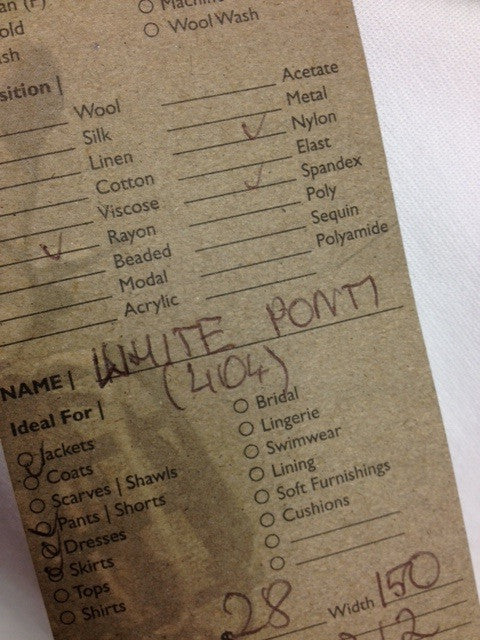 an (P)
old
sh
Machin
Wool Wash
sition |
Wool
Silk
Linen
Cotton
Viscose
Rayon
Beaded
Modal
Acrylic
Acetate
Metal
Nylon
Elast
Spandex
Poly
Sequin
Polyamide
NAME | WHITE PONTI
(404)
Ideal For |
Jackets
Coats
Scarves | Shawls
Pants | Shorts
Dresses
Skirts
Tops
Shirts
Bridal
Lingerie
Swimwear
Lining
Soft Furnishings
Cushions
28 Width 150